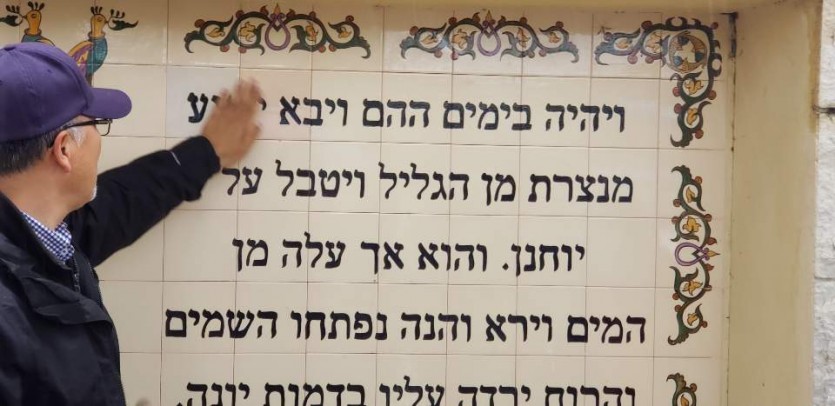 ויהיה בימים ההם ויבא
מנצרת מן הגליל ויטבל על
יוחנן. והוא אך עלה מן
המים וירא והנה נפתחו השמים
והרוח ירדה עליו בדמות יונה.